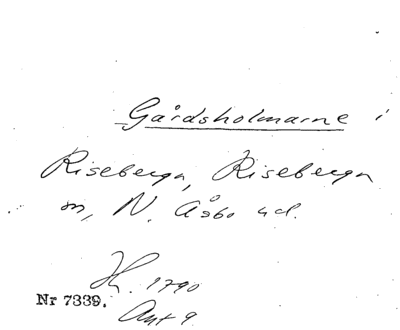 Gårdsholmarne i
Riseberga, Riseberga
sn, N. Åsbo hd.
H. 1790
Nr 7339.
Akt 9